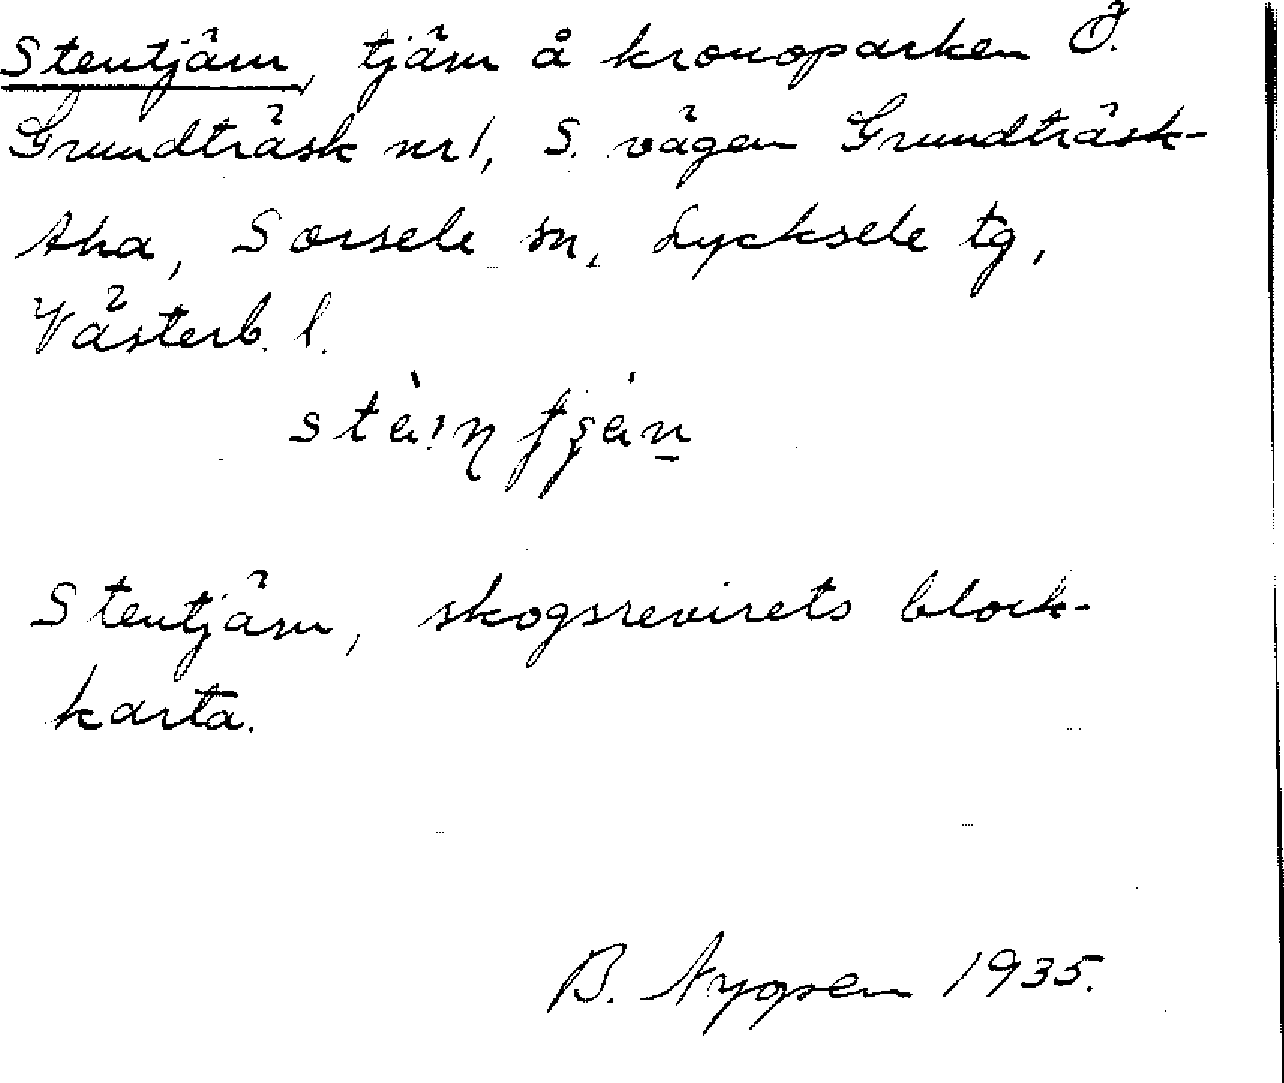 Stentjärn, tjärn å kronoparken Ö.
Grundträsk nr 1, S. vägen Grundträsk-
Aha, Sorsele sn, Lycksele tg,
Västerb. l.
Stentjärn, skogsrevirets block-
karta.
B. 1935.